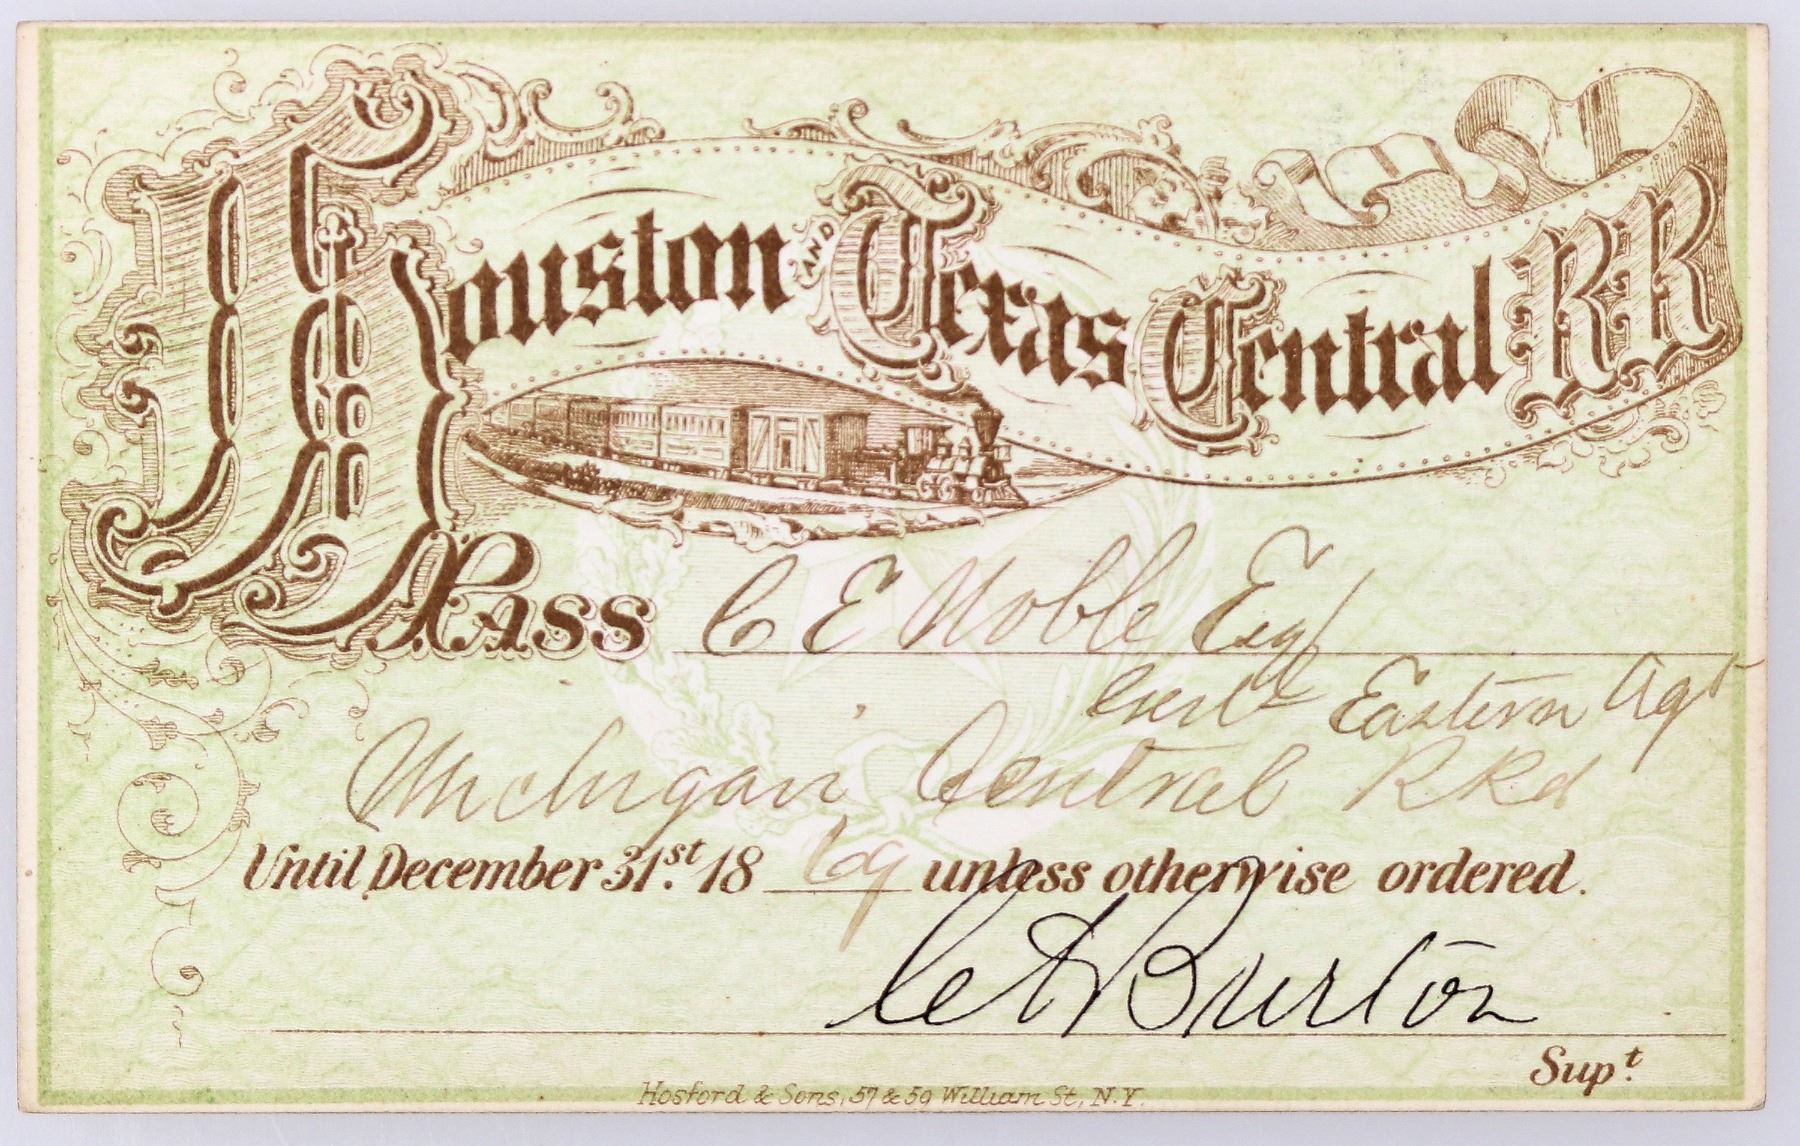 Houston AND Texas Central RR
Pass C E Noble Esq
Genl Eastern Agt
Michigan Central R Rd
Until December 31st. 1869 unless otherwise ordered.
Burton
Supt.
Hosford & Sons, 57 & 59 William St, N.Y.